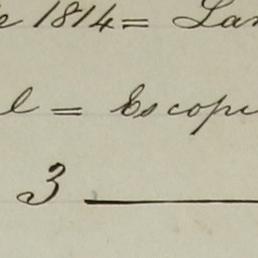 1814= Lan
l = Escopi
3